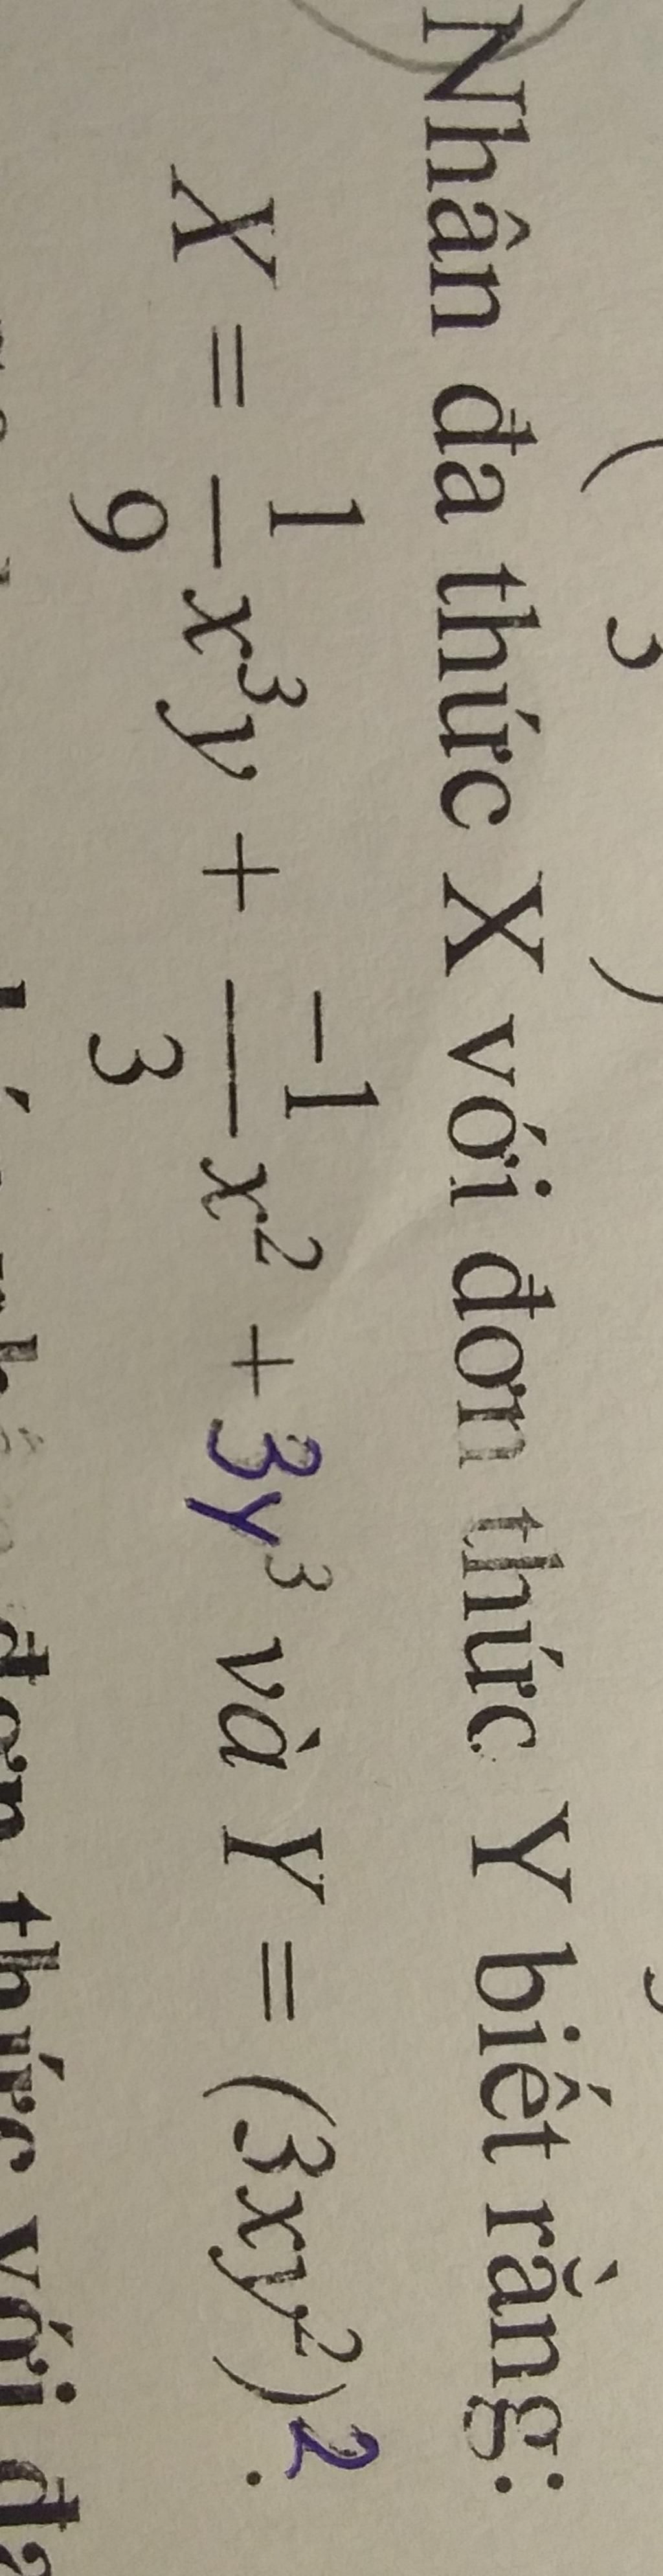 ( 3 )
Nhân đa thức X với đơn thức Y biết rằng:
X = \frac{1}{9}x³y + \frac{-1}{3}x² + 3y³ và Y = (3xy²)².
đơn thức với